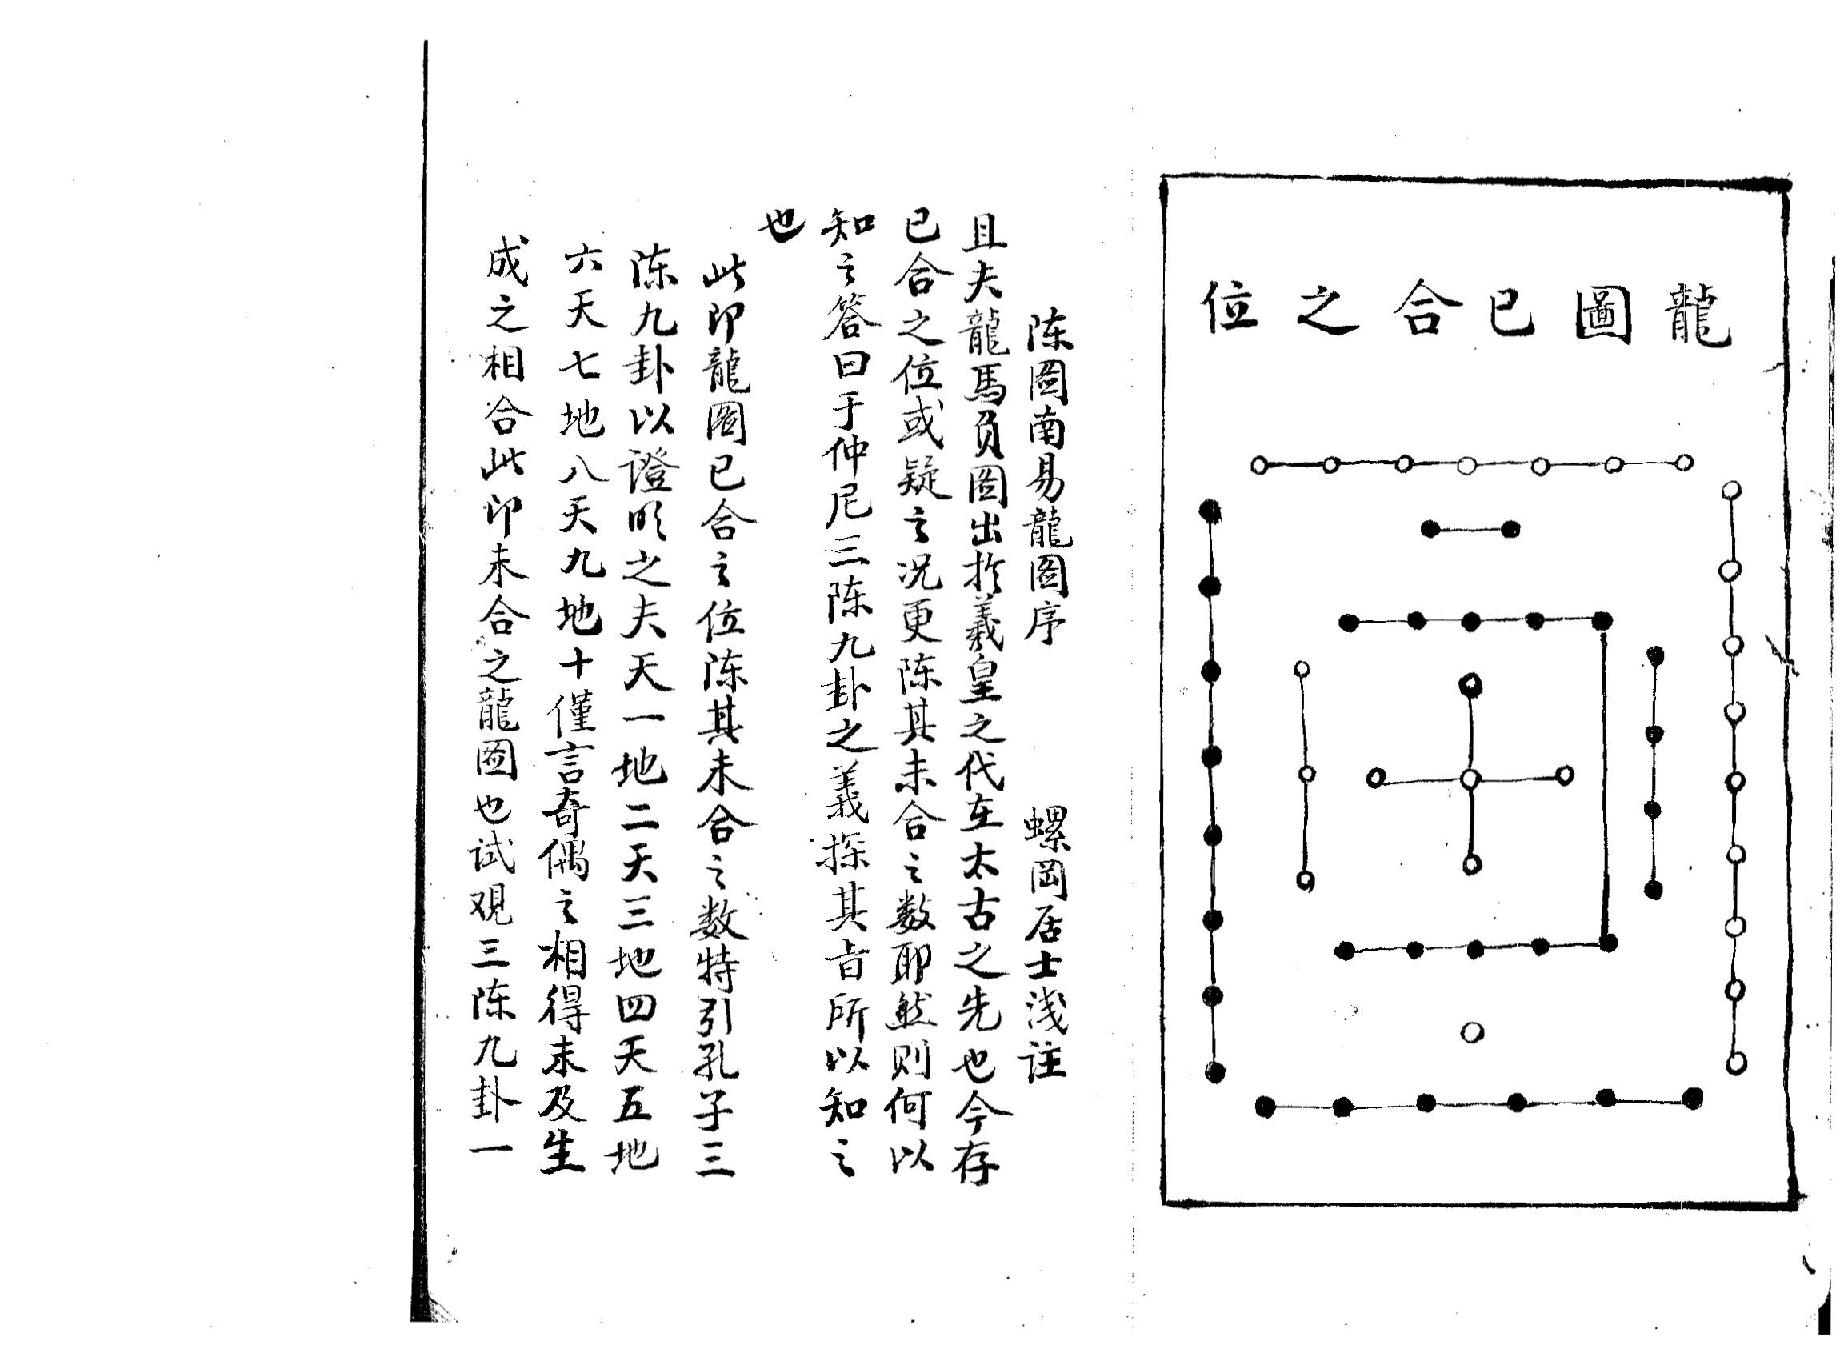 龍圖已合之位
陈图南易龍图序 螺岡居士浅註
且夫龍馬负图出於羲皇之代在太古之先也今存
已合之位或疑之况更陈其未合之数耶然则何以
知之答曰于仲尼三陈九卦之義探其旨所以知之
也
此即龍图已合之位陈其未合之数特引孔子三
陈九卦以證明之夫天一地二天三地四天五地
六天七地八天九地十僅言奇偶之相得未及生
成之相合此即未合之龍图也试观三陈九卦一